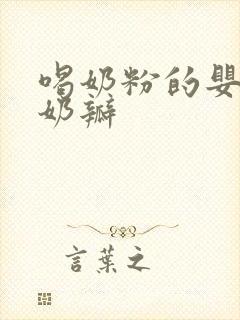 喝奶粉的嬰
奶瓣
言葉之